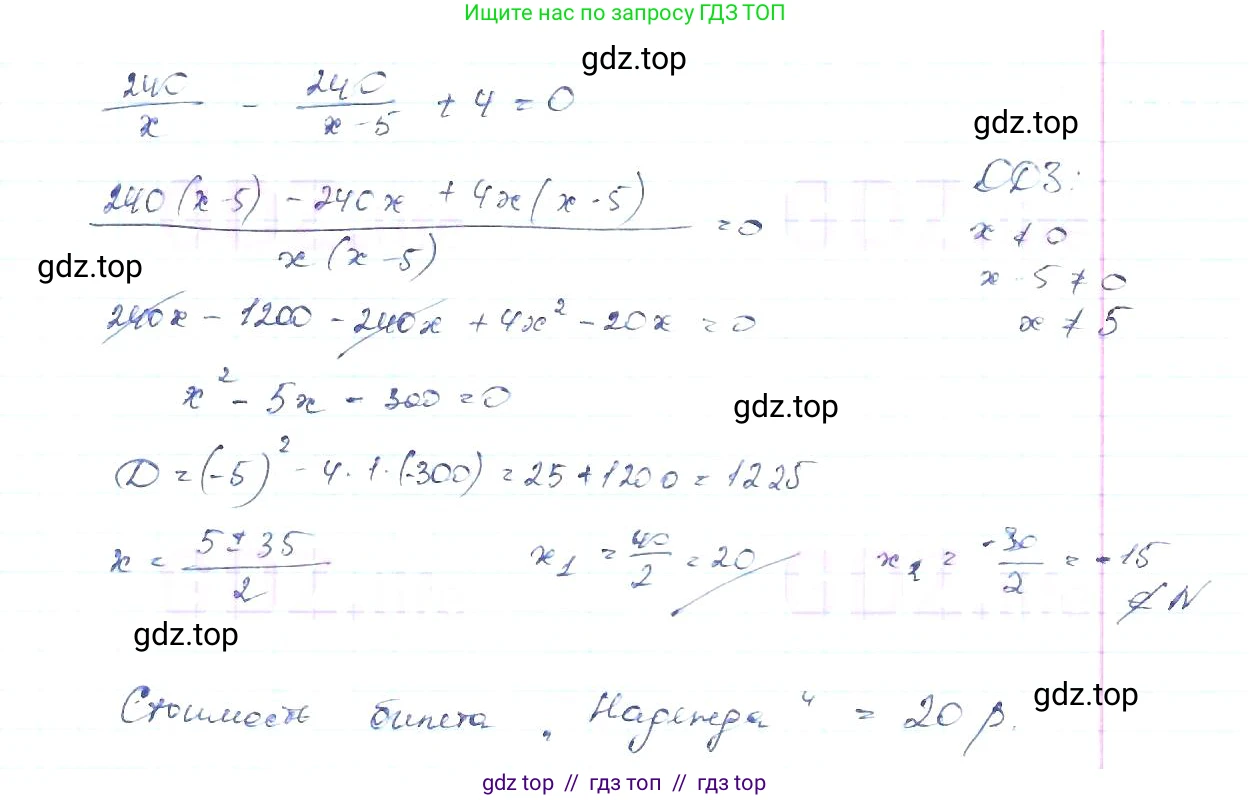 Ищите нас по запросу ГДЗ ТОП
gdz.top
240/x - 240/(x-5) + 4 = 0
gdz.top
ОДЗ:
(240(x-5) - 240x + 4x(x-5))/(x(x-5)) = 0
x ≠ 0
gdz.top
x - 5 ≠ 0
240x - 1200 - 240x + 4x² - 20x = 0
x ≠ 5
x² - 5x - 300 = 0
gdz.top
D = (-5)² - 4·1·(-300) = 25 + 1200 = 1225
x = (5 ± 35)/2 x₁ = 40/2 = 20 x₂ = -30/2 = -15
∉ N
gdz.top
gdz.top
Стоимость билета „Надежда“ = 20 р.
gdz top // гдз топ // гдз top